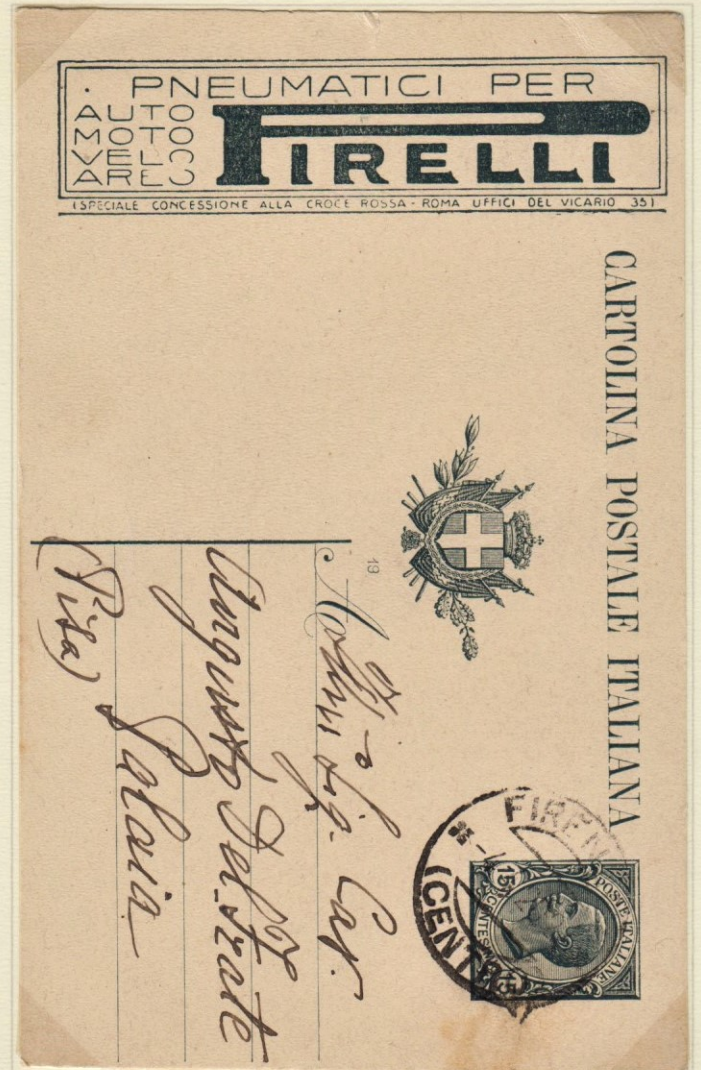 PNEUMATICI PER
AUTO
MOTO
VELO
AREO
PIRELLI
(SPECIALE CONCESSIONE ALLA CROCE ROSSA - ROMA UFFICI DEL VICARIO 35)
CARTOLINA POSTALE ITALIANA
FIREN
(CENTR
POSTE ITALIANE
15 CENTES 15
19
Sig. Cav.
Augusto Del Frate
Palaia
(Pisa)